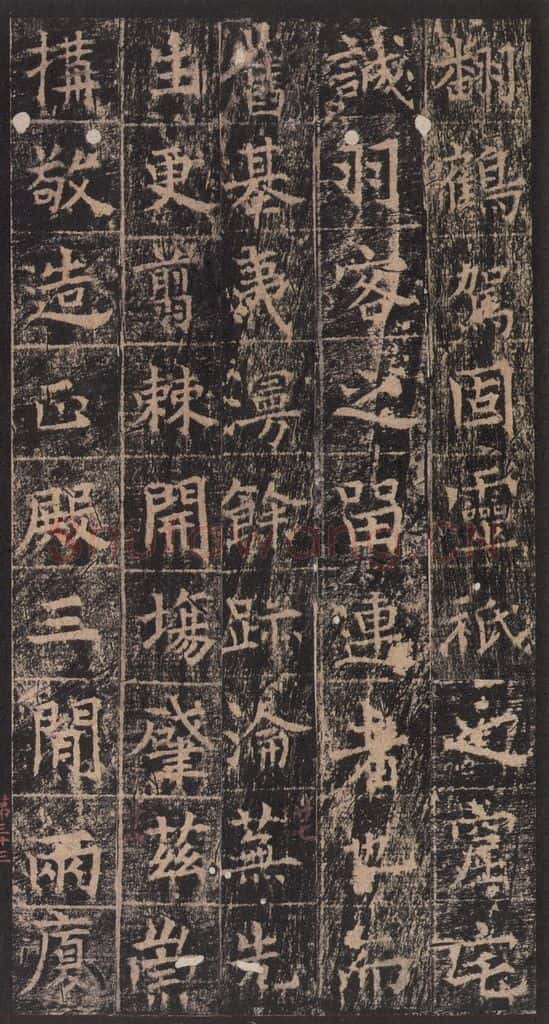 翻鶴駕固靈祇之窟宅
誠羽客之畱連者也而
舊基夷漫餘跡淪蕪先
生更翦棘開塲肇茲崇
搆敬造正殿三間兩廈